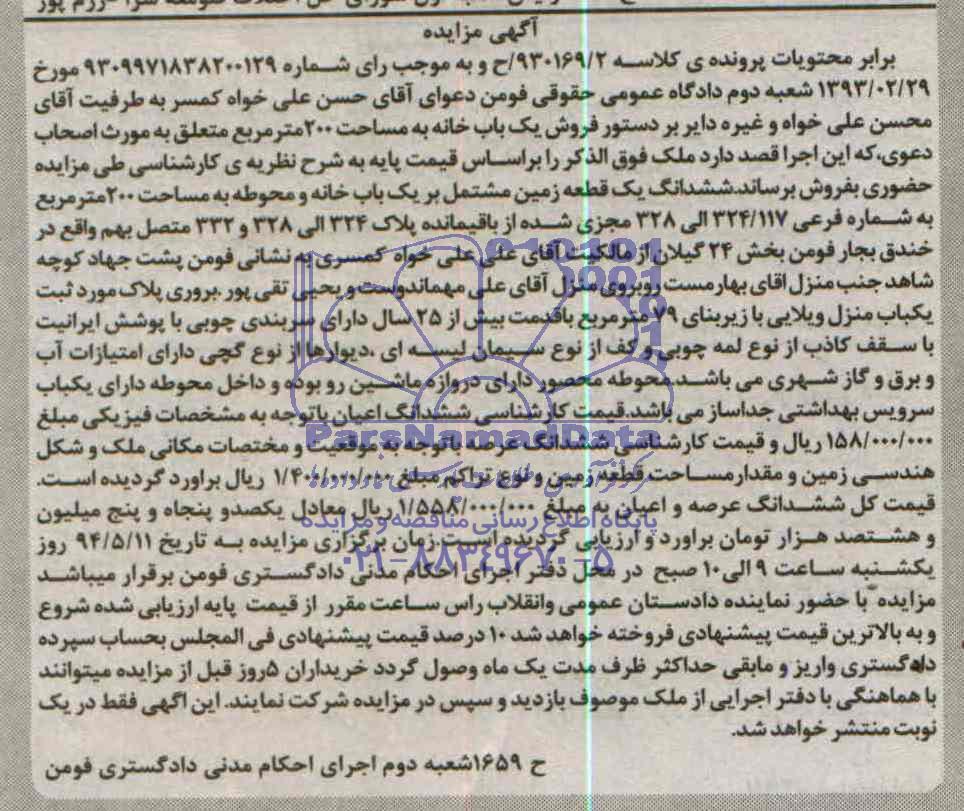 آگهی مزایده
برابر محتویات پرونده ی کلاسه ۹۳۰۱۶۹/۲/ح و به موجب رای شماره ۹۳۰۹۹۷۱۸۳۸۲۰۰۱۲۹ مورخ
۱۳۹۳/۰۲/۲۹ شعبه دوم دادگاه عمومی حقوقی فومن دعوای آقای حسن علی خواه کمسر به طرفیت آقای
محسن علی خواه و غیره دایر بر دستور فروش یک باب خانه به مساحت ۲۰۰مترمربع متعلق به مورث اصحاب
دعوی،که این اجرا قصد دارد ملک فوق الذکر را براساس قیمت پایه به شرح نظریه ی کارشناسی طی مزایده
حضوری بفروش برساند.ششدانگ یک قطعه زمین مشتمل بر یک باب خانه و محوطه به مساحت ۲۰۰مترمربع
به شماره فرعی ۳۲۴/۱۱۷ الی ۳۲۸ مجزی شده از باقیمانده پلاک ۳۲۴ الی ۳۲۸ و ۳۳۲ متصل بهم واقع در
خندق بجار فومن بخش ۲۴ گیلان از مالکیت آقای علی علی خواه کمسری به نشانی فومن پشت جهاد کوچه
شاهد جنب منزل اقای بهارمست روبروی منزل آقای علی مهماندوست و یحیی تقی پور .بروری پلاک مورد ثبت
یکباب منزل ویلایی با زیربنای ۷۹ مترمربع باقدمت بیش از ۲۵ سال دارای سربندی چوبی با پوشش ایرانیت
با سقف کاذب از نوع لمه چوبی و کف از نوع سیمان لیسه ای ،دیوارها از نوع گچی دارای امتیازات آب
و برق و گاز شهری می باشد.محوطه محصور دارای دروازه ماشین رو بوده و داخل محوطه دارای یکباب
سرویس بهداشتی جداساز می باشد.قیمت کارشناسی ششدانگ اعیان باتوجه به مشخصات فیزیکی مبلغ
۱۵۸/۰۰۰/۰۰۰ ریال و قیمت کارشناسی ششدانگ عرصه باتوجه به موقعیت و مختصات مکانی ملک و شکل
هندسی زمین و مقدارمساحت قطعه زمین و نوع تراکم مبلغ ۱/۴۰۰/۰۰۰/۰۰۰ ریال براورد گردیده است.
قیمت کل ششدانگ عرصه و اعیان به مبلغ ۱/۵۵۸/۰۰۰/۰۰۰ ریال معادل یکصدو پنجاه و پنج میلیون
و هشتصد هزار تومان براورد و ارزیابی گردیده است.زمان برگزاری مزایده به تاریخ ۹۴/۵/۱۱ روز
یکشنبه ساعت ۹ الی۱۰ صبح در محل دفتر اجرای احکام مدنی دادگستری فومن برقرار میباشد
مزایده با حضور نماینده دادستان عمومی وانقلاب راس ساعت مقرر از قیمت پایه ارزیابی شده شروع
و به بالاترین قیمت پیشنهادی فروخته خواهد شد ۱۰ درصد قیمت پیشنهادی فی المجلس بحساب سپرده
دادگستری واریز و مابقی حداکثر ظرف مدت یک ماه وصول گردد خریداران ۵روز قبل از مزایده میتوانند
با هماهنگی با دفتر اجرایی از ملک موصوف بازدید و سپس در مزایده شرکت نمایند. این اگهی فقط در یک
نوبت منتشر خواهد شد.
ح ۱۶۵۹شعبه دوم اجرای احکام مدنی دادگستری فومن
ParsNamadData
پایگاه اطلاع رسانی مناقصه و مزایده
۰۲۱-۸۸۳۴۹۶۷۰-۵